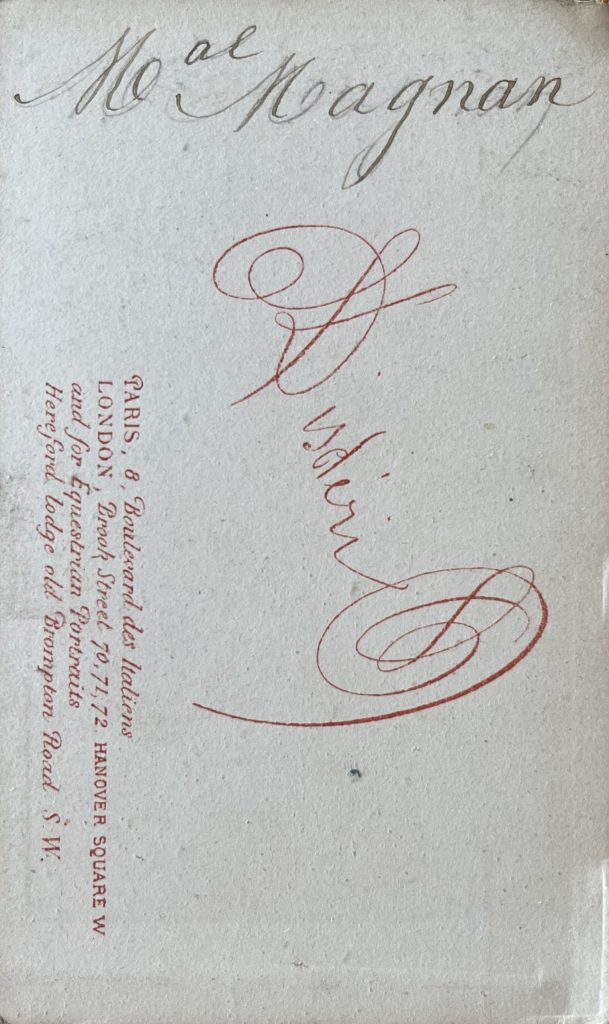 Mal Magnan
Disdéri
PARIS, 8, Boulevard des Italiens
LONDON, Brook Street 70, 71, 72. HANOVER SQUARE W
and for Equestrian Portraits
Hereford lodge old Brompton Road S. W.